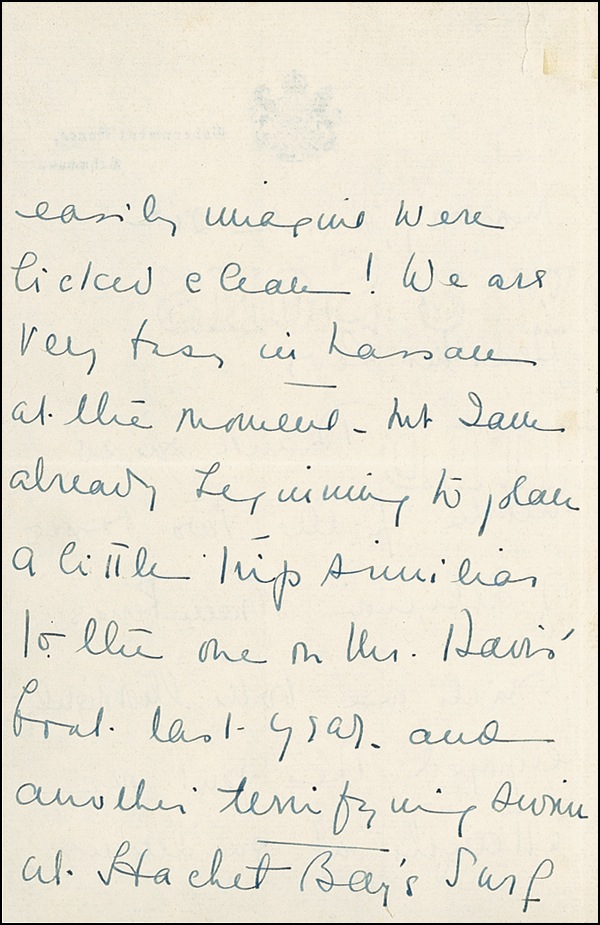 easily imagine were
licked clean! We are
very busy in Nassau
at the moment - but I am
already beginning to plan
a little trip similiar
to the one on Mr. Davis'
boat last year. and
another terrifying swim
at Hachet Bay's Surf